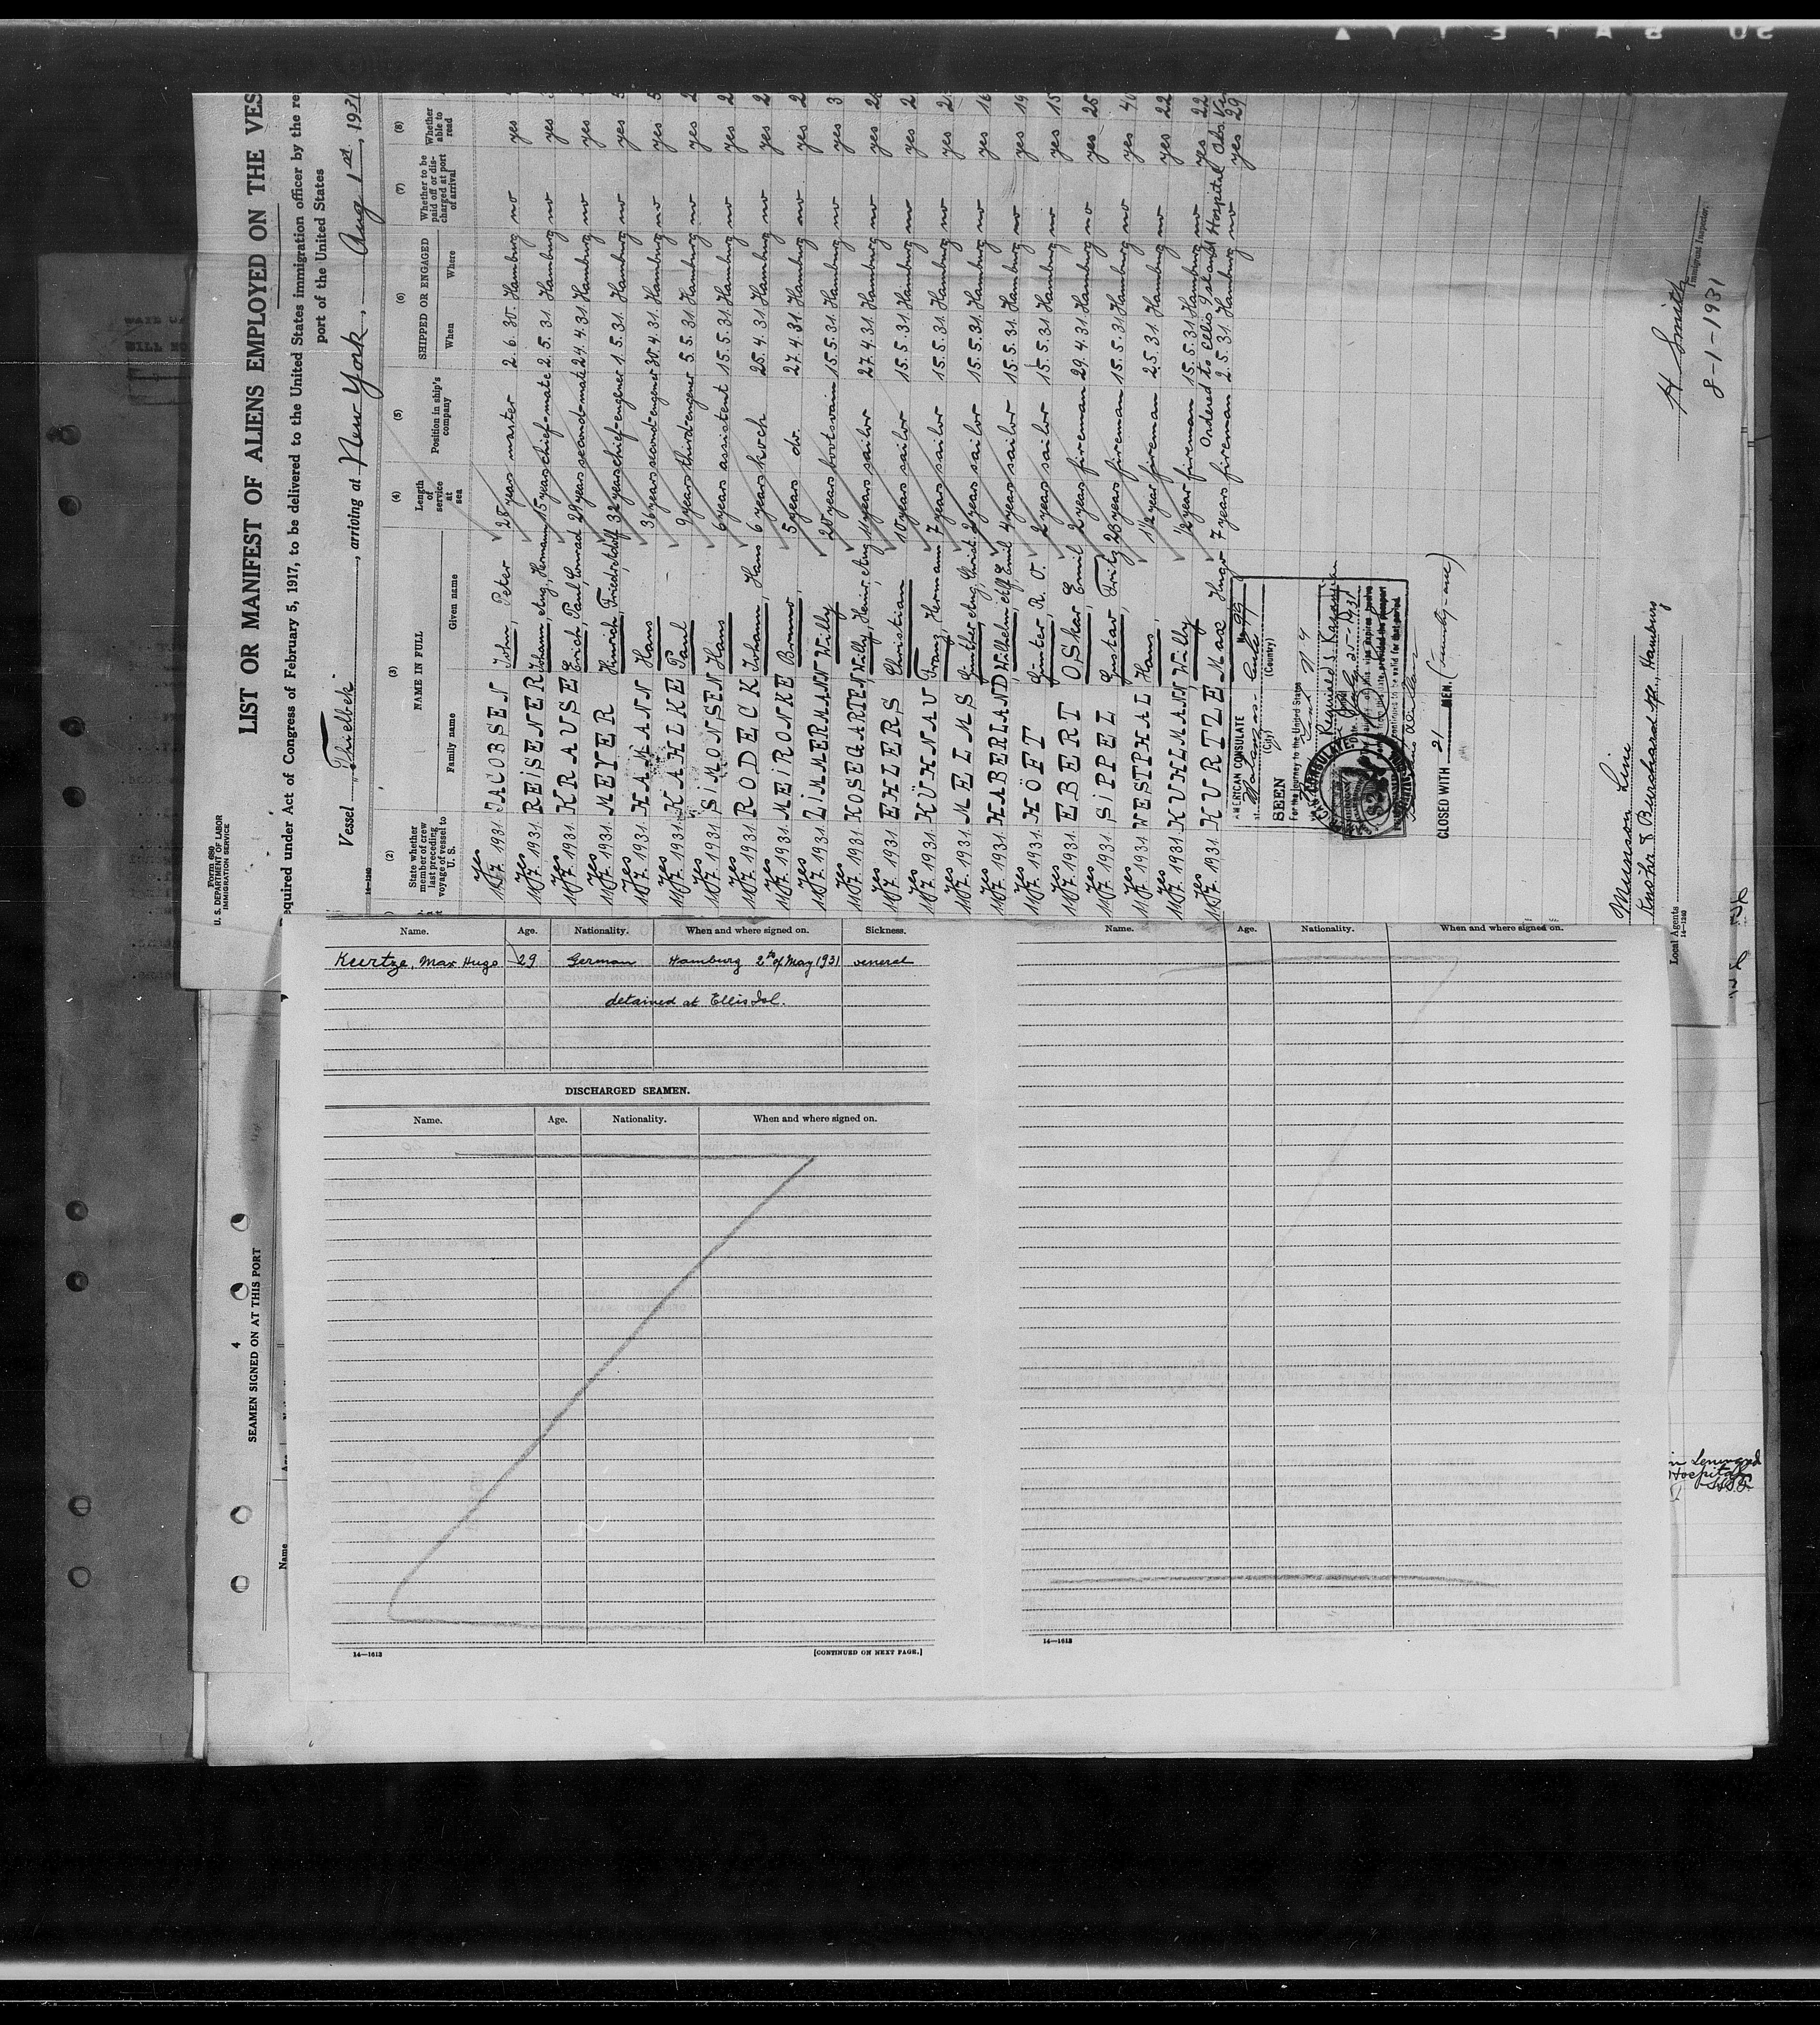 Form 680
U. S. DEPARTMENT OF LABOR
IMMIGRATION SERVICE
LIST OR MANIFEST OF ALIENS EMPLOYED ON THE VES
equired under Act of Congress of February 5, 1917, to be delivered to the United States immigration officer by the re
port of the United States
Vessel Thielbek, arriving at New York, Aug 1st, 1931
14-1240
(2) (3) (4) (5) (6) (7) (8)
State whether member of crew last preceding voyage of vessel to U. S.
NAME IN FULL
Family name Given name
Length of service at sea
Position in ship's company
SHIPPED OR ENGAGED
When Where
Whether to be paid off or discharged at port of arrival
Whether able to read
yes 1931 JACOBSEN John Peter 25 years master 2. 6. 30. Hamburg no yes
yes 1931 REISENER Johann, Aug, Hermann 15 years chief-mate 2. 5. 31 Hamburg no yes
yes 1931 KRAUSE Erich Paul, Conrad 29 years second-mate 24. 4. 31 Hamburg no yes
yes 1931 MEYER Hinrich Friedr. Adolf 32 years chief-engeneer 1. 5. 31 Hamburg no yes
yes 1931 HAMANN Hans 36 years second-engener 30. 4. 31. Hamburg no yes
yes 1931 KAHLKE Paul 9 years third-engener 5. 5. 31 Hamburg no yes
yes 1931 SIMONSEN Hans 6 years assistent 15. 5. 31 Hamburg no yes
yes 1931 RODECK Johann, Hans 6 years koch 25. 4. 31 Hamburg no yes
yes 1931 MEIRONKE Brunno 5 years do. 27. 4. 31 Hamburg no yes
yes 1931 ZIMMERMANN Willy 20 years bootsvain 15. 5. 31 Hamburg no yes
yes 1931 KOSEGARTEN Willy, Heinr. Aug 11 years sailor 27. 4. 31. Hamburg no yes
yes 1931 EHLERS Christian 10 years sailor 15. 5. 31 Hamburg no yes
yes 1931 KÜHNAU Franz, Hermann 7 years sailor 15. 5. 31 Hamburg no yes
yes 1931 MELMS Günther Aug. Christ. 2 years sailor 15. 5. 31. Hamburg no yes
yes 1931 HABERLAND Wilhelm Alf. Emil 4 years sailor 15. 5. 31. Hamburg no yes
yes 1931 HÖFT Günter R. O. 2 years sailor 15. 5. 31 Hamburg no yes
yes 1931 EBERT OSkar Emil 2 years fireman 29. 4. 31 Hamburg no yes 25
yes 1931 SIPPEL Gustav, Fritz 23 years fireman 15. 5. 31 Hamburg no yes 40
yes 1931 WESTPHAL Hans, 1 1/2 year fireman 2. 5. 31 Hamburg no yes 22
yes 1931 KUHLMANN Willy 1/2 year fireman 15. 5. 31 Hamburg no yes 22
Ordered to Ellis Island Hospital
yes 1931 KURTZE Max Hugo 7 years fireman 2. 5. 31. Hamburg no yes 29
AMERICAN CONSULATE
Matanzas - Cuba No. 99
(City) (Country)
SEEN
For the Journey to the United States
CLOSED WITH 21 MEN. (Twenty-one)
H. Smith
Immigrant Inspector.
8-1-1931
Munson Line
Knöhr & Burchard Nfl., Hamburg
Local Agents
14-1240
Name. Age. Nationality. When and where signed on. Sickness.
Kurtze, Max Hugo 29 German Hamburg 2th of May 1931 veneral
detained at Ellis Isl.
DISCHARGED SEAMEN.
Name. Age. Nationality. When and where signed on.
14—1613 [CONTINUED ON NEXT PAGE.]
Name. Age. Nationality. When and where signed on.
14—1613
4
SEAMEN SIGNED ON AT THIS PORT
Name Age
in Leningrad
Hospital